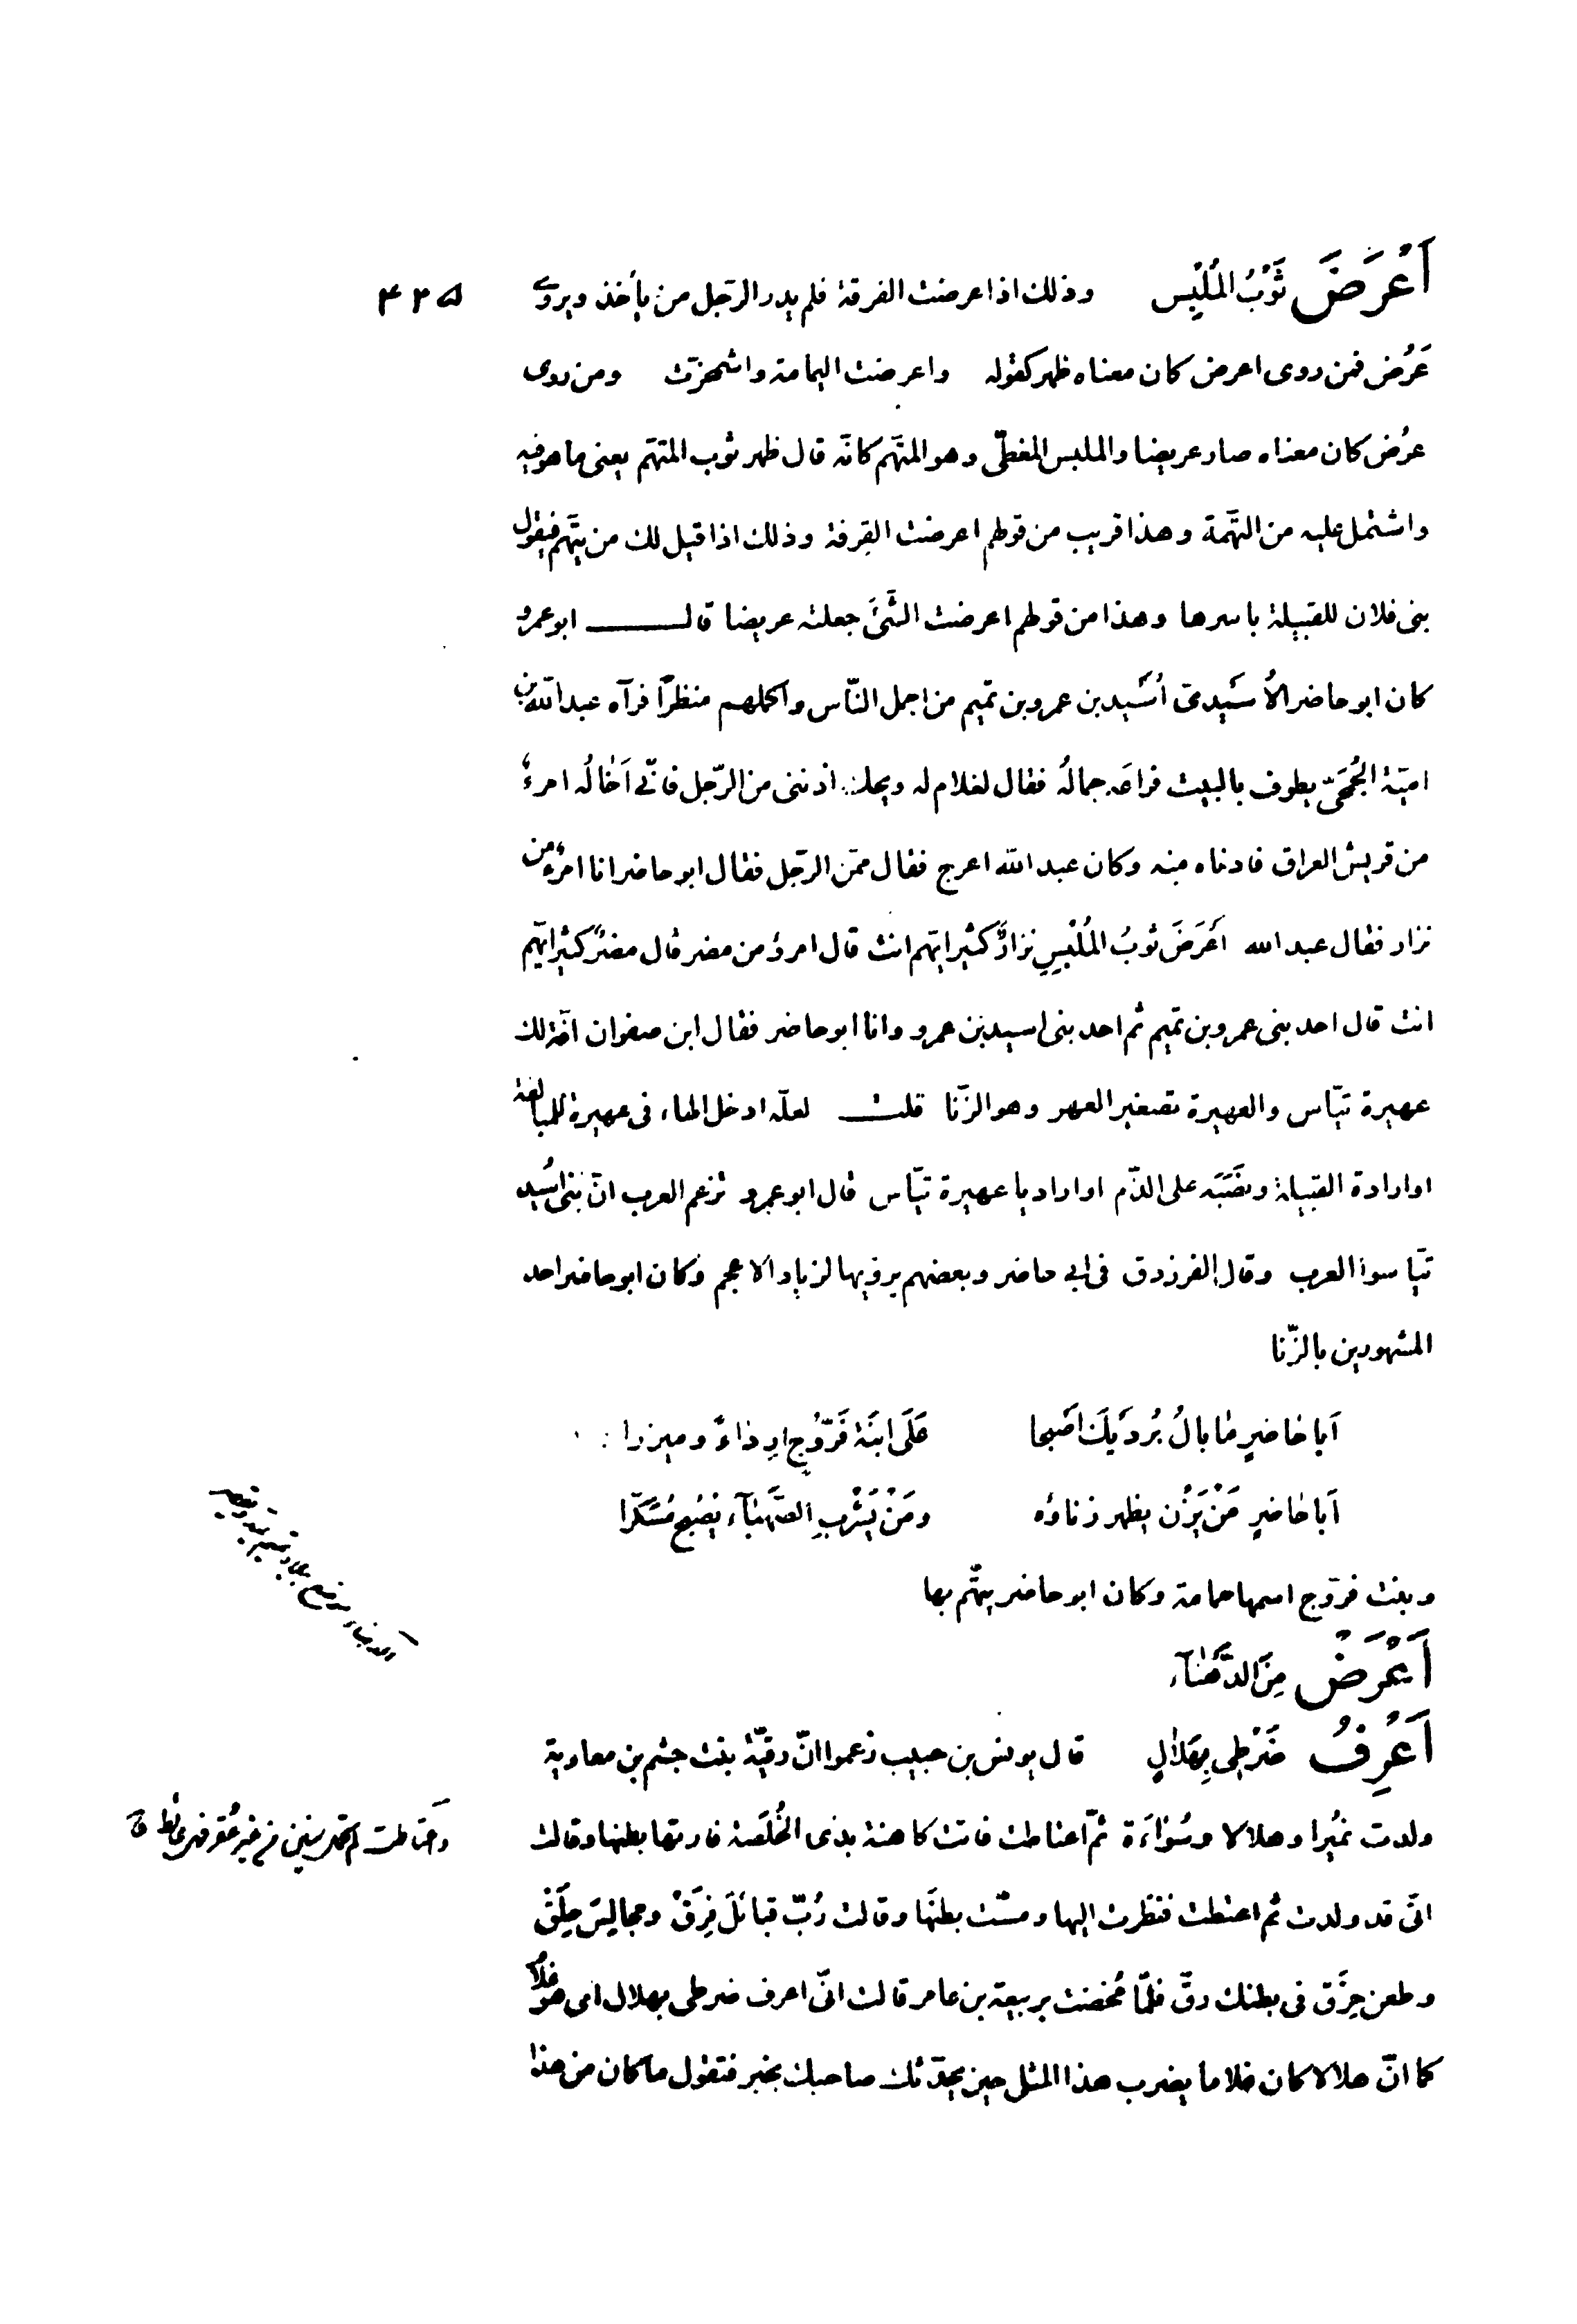 اَعْرَضَ ثَوْبُ المُلْبِسِ وذلك اذا عرضت القرفة فلم يدر الرّجل من يأخذ ويروى
۴۳۵
عَرُض فمن روى اعرض كان معناه ظهر كقوله واعرضت اليمامة واشمخرّت ومن روى
عرُض كان معناه صار عريضا والملبس المغطّى وهو المتّهم كانّه قال ظهر ثوب المتهّم يعنى ما هو فيه
واشتمل عليه من التّهمة وهذا قريب من قولهم اعرضت القرفة وذلك اذا قيل لك من تتّهم فيقول
بنى فلان للقبيلة باسرها وهذا من قولهم اعرضت الشّئَ جعلته عريضا قال ابو عمرو
كان ابو حاضر الأُسَيْدىّ اُسَيّد بن عمرو بن تميم من اجمل النّاس واكملهم منظرًا فرآه عبد الله بن
اميّة الجُمَحىّ يطوف بالبيت فراعَه جمالُه فقال لغلام له ويحك ادننى من الرّجل فانّى اَخالُه امرءً
من قريش العراق فادناه منه وكان عبد الله اعرج فقال ممّن الرّجل فقال ابو حاضر انا امرءٌ من
نزار فقال عبد الله اَعْرَضَ ثوبُ المُلْبِسِ نزارٌ كثير ايّهم انت قال امرؤ من مضر قال مضرٌ كثير ايّهم
انت قال احد بنى عمرو بن تميم ثم احد بنى اسيد بن عمرو وانا ابو حاضر فقال ابن صفوان افّة لك
عهيرة تيّاس والعهيرة تصغير العهر وهو الزّنا قلت لعلّه ادخل الهاء فى عهيرة للمبالغة
او ارادة القبيلة ونصَبَه على الذّم او اراد يا عهيرة تيّاس قال ابو عمرو تزعم العرب انّ بنى اُسَيد
تيّاسوا العرب وقال الفرزدق فى ابى حاضر وبعضهم يرويها لزياد الاعجم وكان ابو حاضر احد
المشهورين بالزّنا
اَبا حاضِرٍ ما بالُ بُردَيكَ اَصْبحا عَلَى ابنَةِ فَرّوُجٍ اِرِداءً وميزرا
اَبا حاضِرٍ مَنْ يَزْن يظهر زناؤه ومَنْ يَشْرِبِ الصَّهْبآءَ يُصْبِح مُسَكَّرا
وبنت فرّوج اسمها حمامة وكان ابو حاضر يتّهم بها
اَعْرَضُ مِنَ الدَّهْنآءِ
اَعْرِفُ ضَرْطِى بِهِلالٍ قال يونس بن حبيب زعموا انّ رقيّة بنت جشم بن معاوية
ولدت نُمَيرا وهلالا وسُوَاءَة ثمّ اعتاطت فاتت كاهنة بذى الخُلَصَة فارتها بطنها وقالت
واعتاطت لم تحمل سنين من غير عُقر فهى عائط ق
انّى قد ولدت ثم اعتطت فنظرت اليها ومسّت بطنَها وقالت رُبّ قبائلَ فِرَقْ ومجالِسَ حِلَقْ
وظعن حِزَق فى بطنك رقّ فلمّا مُخضت بربيعة بن عامر قالت انّى اعرف ضرطى بهلال اى هو غلامٌ
كما انّ هلالا كان غلاما يضرب هذا المثل حين يحدّثك صاحبك بخبر فتقول ما كان من هذا